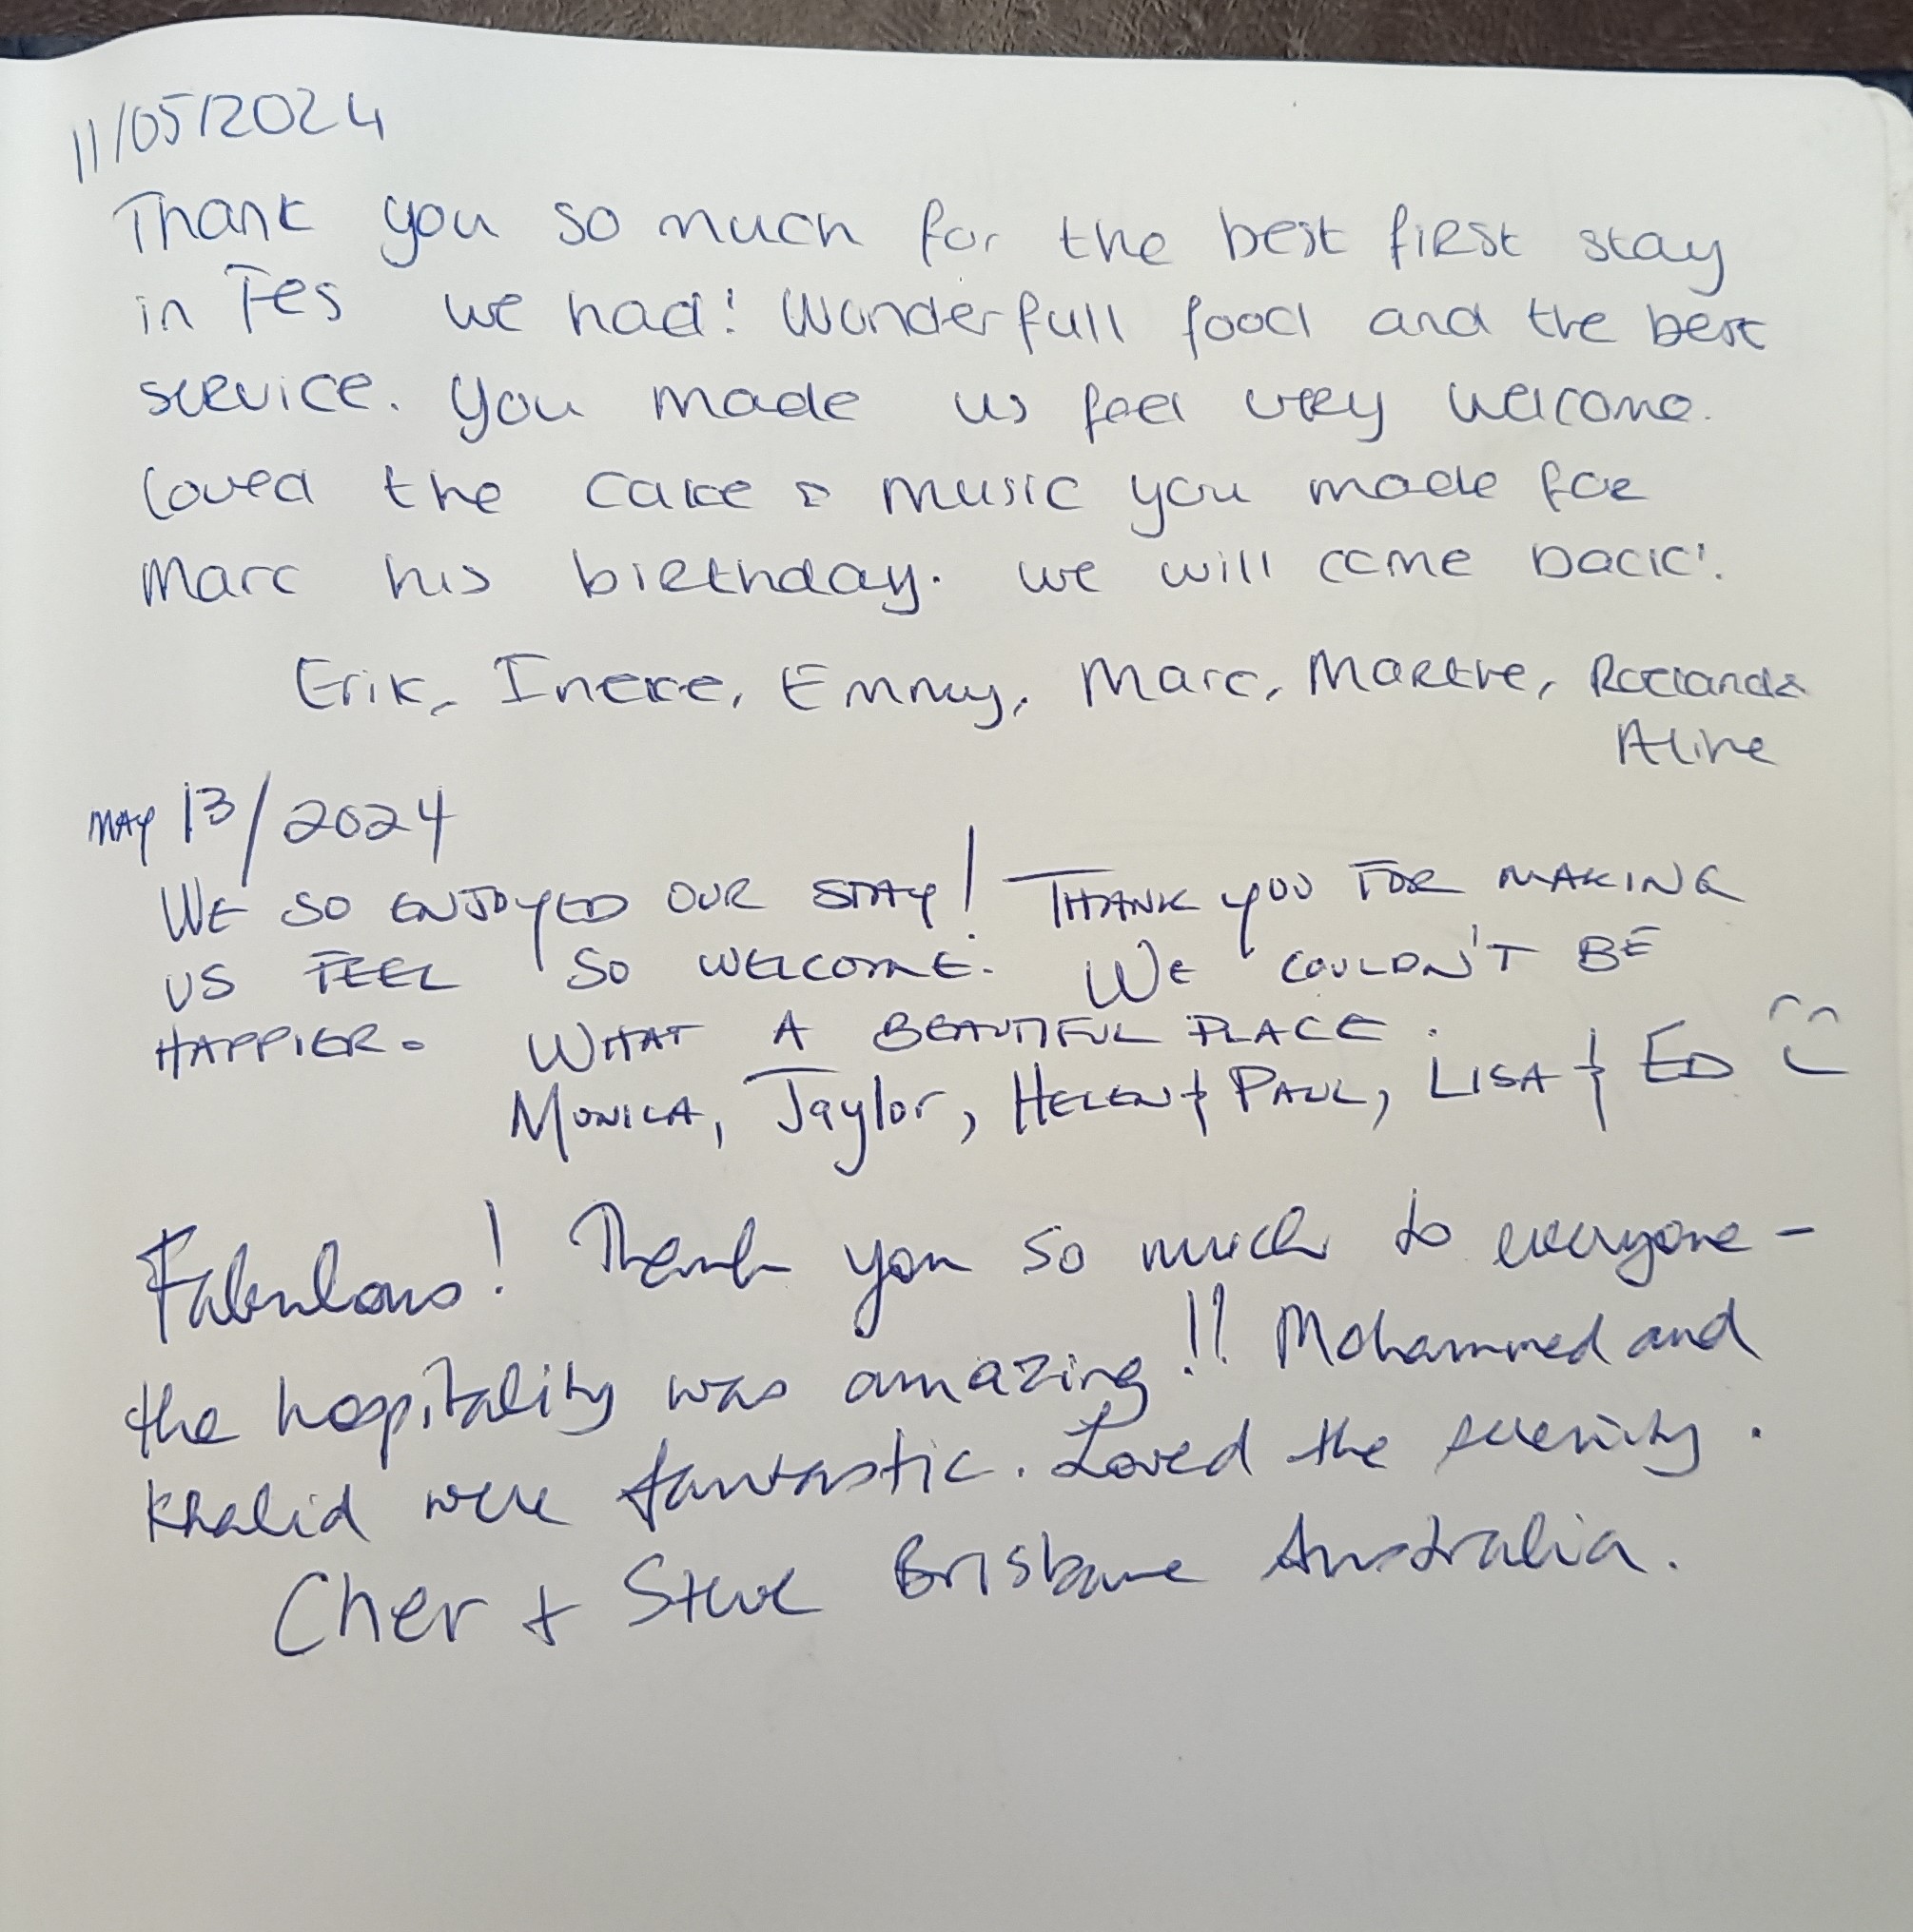 11/05/2024
Thank you so much for the best first stay
in Fes we had! Wonderfull food and the best
service. You made us feel very welcome.
Loved the cake & music you made for
Marc his birthday. we will come back!
Erik, Ineke, Emmy, Marc, Marthe, Roeland &
Aline
MAY 13/2024
WE SO ENJOYED OUR STAY! THANK YOU FOR MAKING
US FEEL SO WELCOME. WE COULDN'T BE
HAPPIER. WHAT A BEAUTIFUL PLACE.
MONICA, Taylor, HELEN & PAUL, LISA & ED
Fabulous! Thank you so much to everyone -
the hospitality was amazing!!! Mohammed and
Khalid were fantastic. Loved the serenity.
Cher + Steve Brisbane Australia.